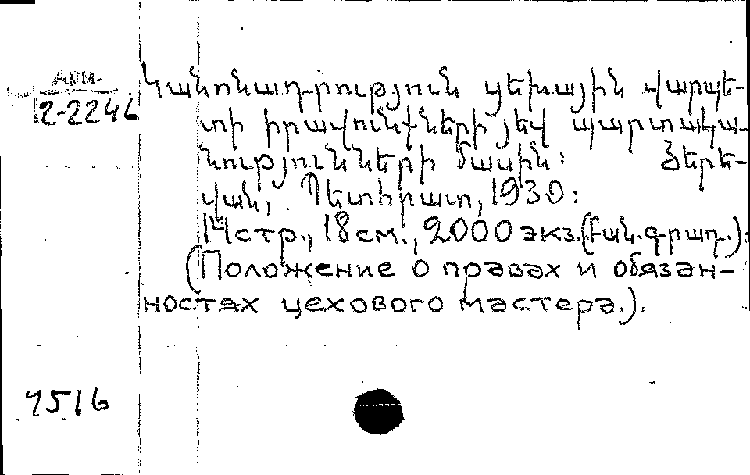 Арм.
2-2246
Կանոնադրություն ցեխային վարպե-
տի իրավունքների յեվ պարտակա-
նությունների մասին: Յերե-
վան, Պետհրատ, 1930:
14 стр., 18 см., 2000 экз. (Բան. գրադ.):
(Положение о правах и обязан-
ностях цехового мастера.).
1516